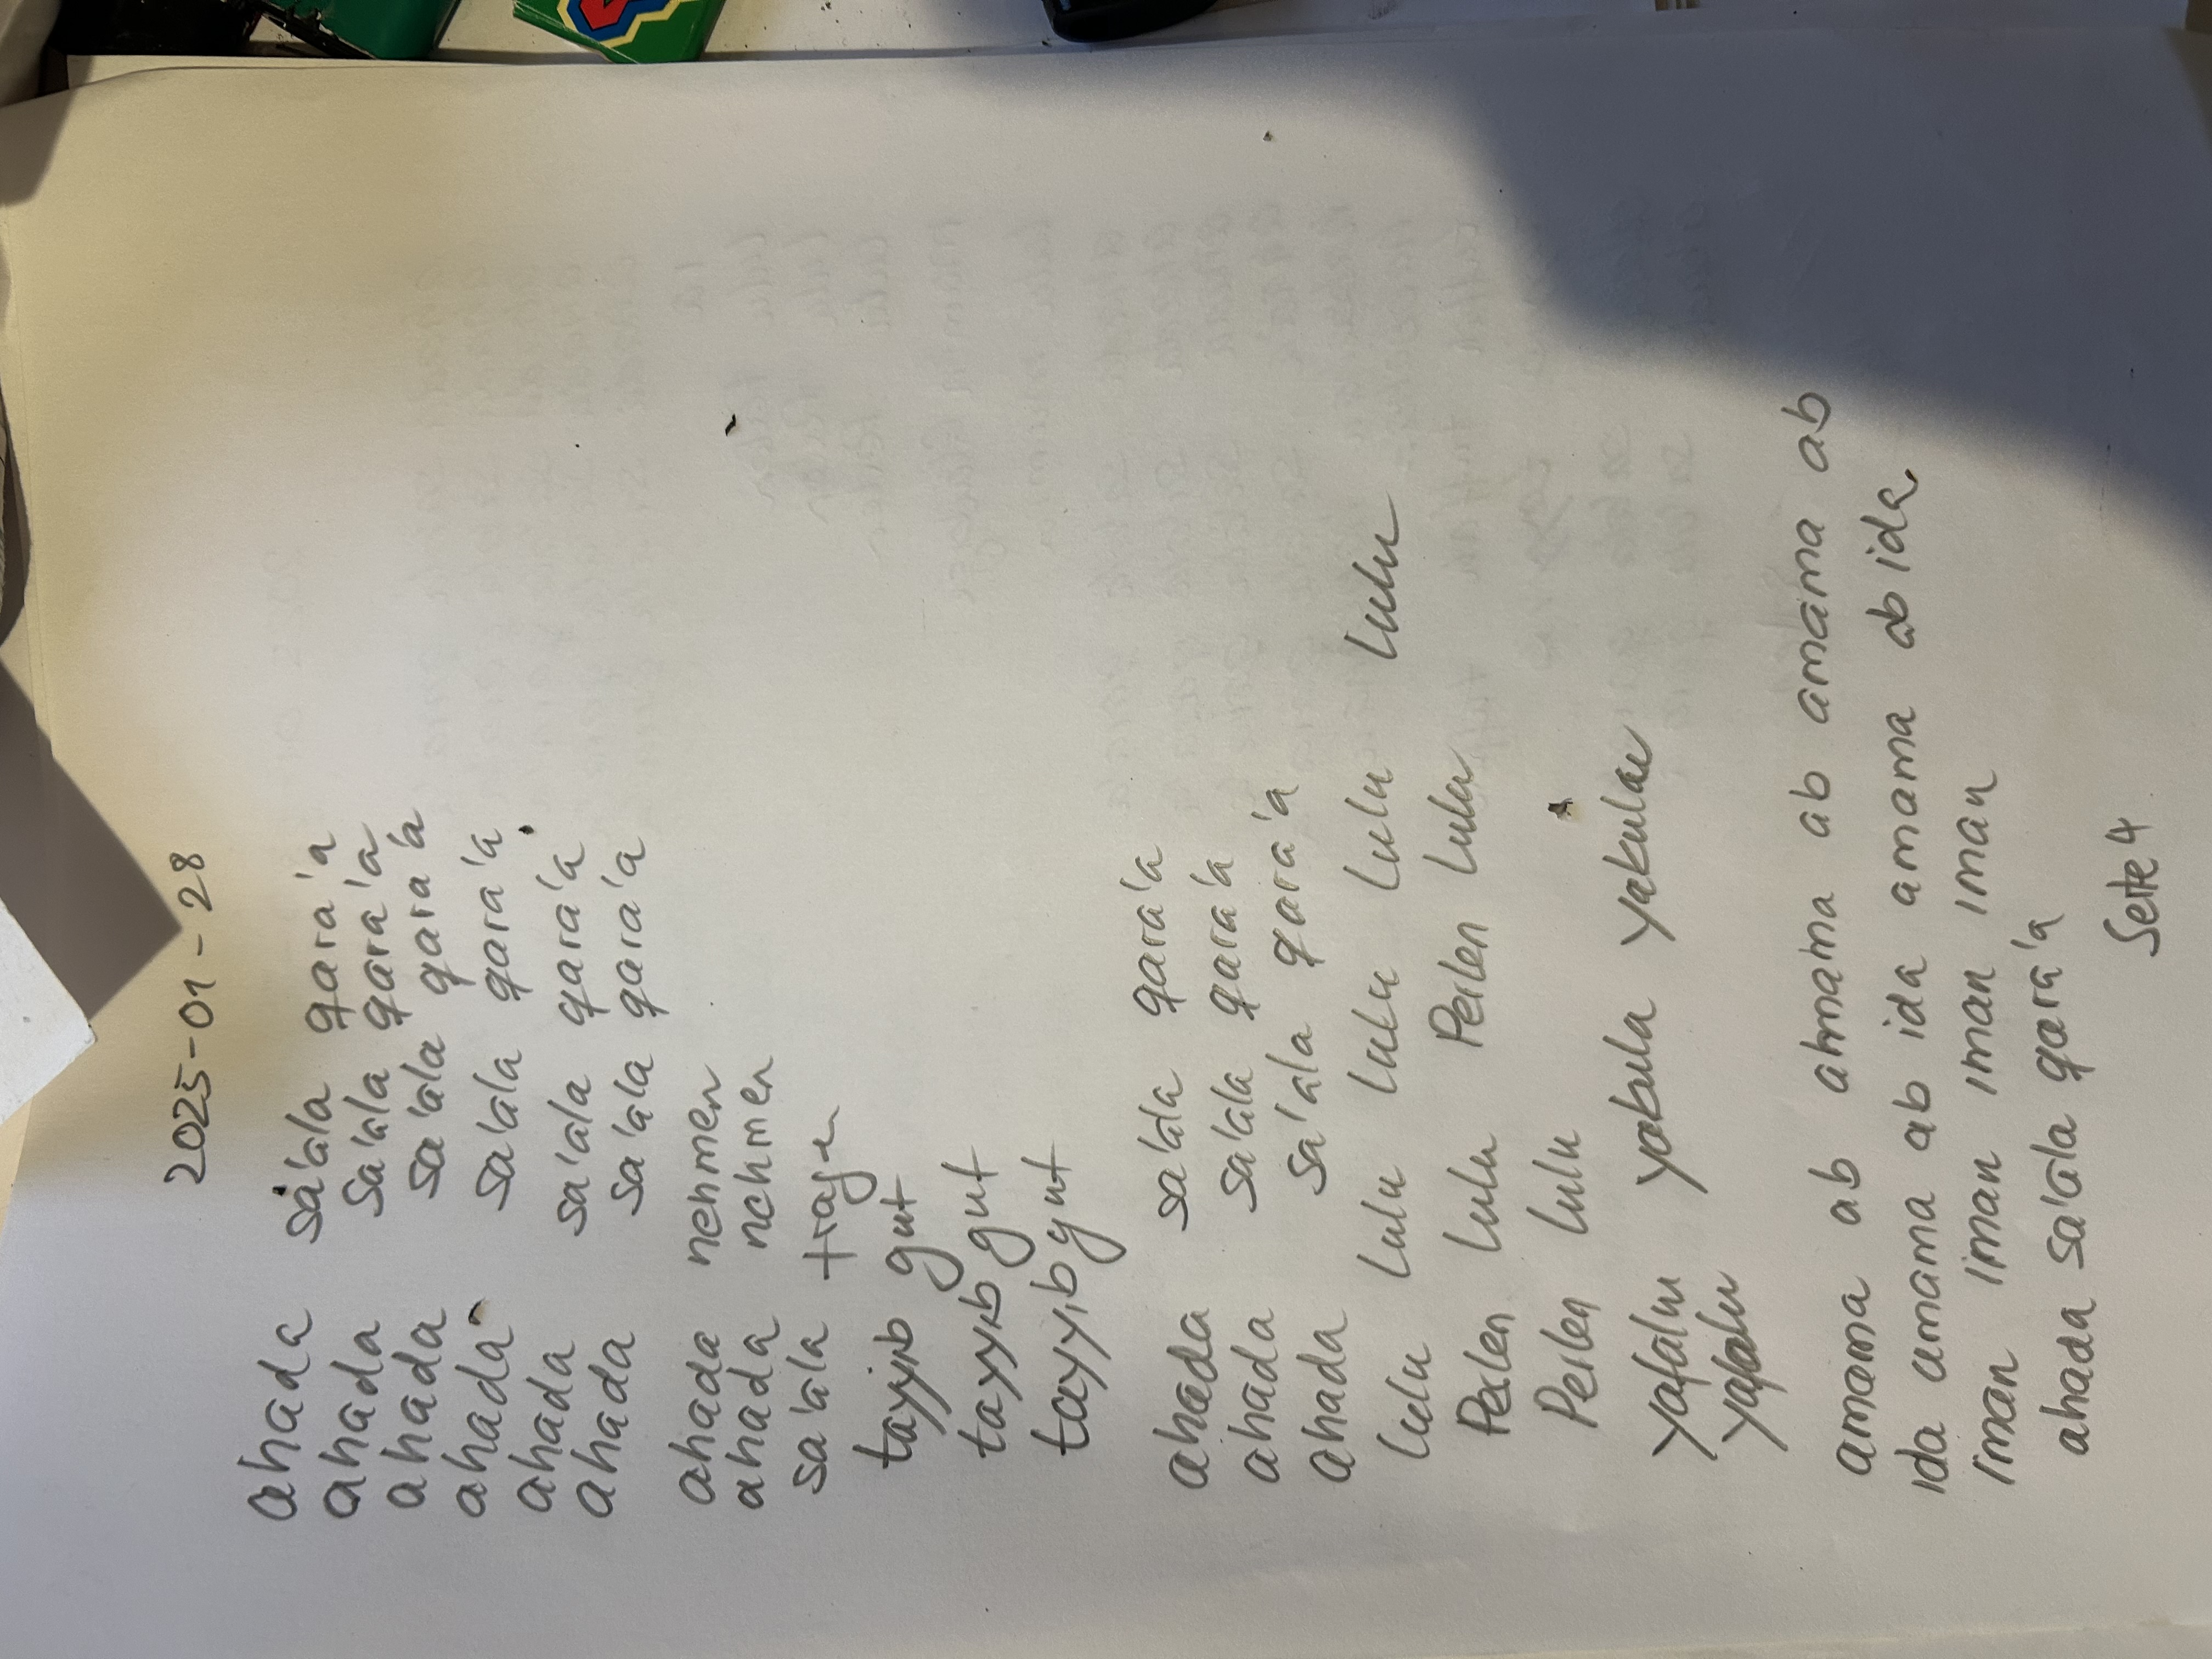 2025-01-28
ahada sa'ala qara'a
ahada sa'ala qara'a
ahada sa'ala qara'a
ahada sa'ala qara'a
ahada sa'ala qara'a
ahada sa'ala qara'a
ahada nehmen
ahada nehmen
sa'ala
tayyib gut
tayyib gut
tayyib gut
ahada sa'ala qara'a
ahada sa'ala qara'a
ahada sa'ala qara'a
lulu lulu lulu lulu lulu lulu
Perlen lulu Perlen lulu
Perlen lulu
yafalu yakula yakulau
yafalu
amama ab ahmama ab amama ab
ida amama ab ida amama ab ida
iman iman iman iman iman
ahada sa'ala qara'a
Seite 4